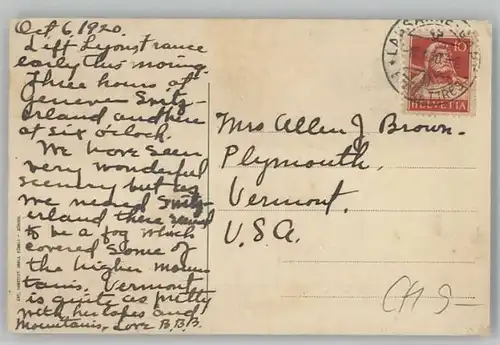 Oct 6, 1920.
Left Lyons France
early this morning.
Three hours at
Geneva Switz-
erland and here
at six o'clock.
We have seen
very wonderful
scenery but as
we neared Switz-
erland there seemed
to be a fog which
covered some of
the higher moun
tains. Vermont
is quite as pretty
with her lakes and
Mountains, Love B.B.B.
LAUSANNE
10
HELVETIA
Mrs Allen J Brown.
Plymouth,
Vermont.
U.S.A.
CH 9-